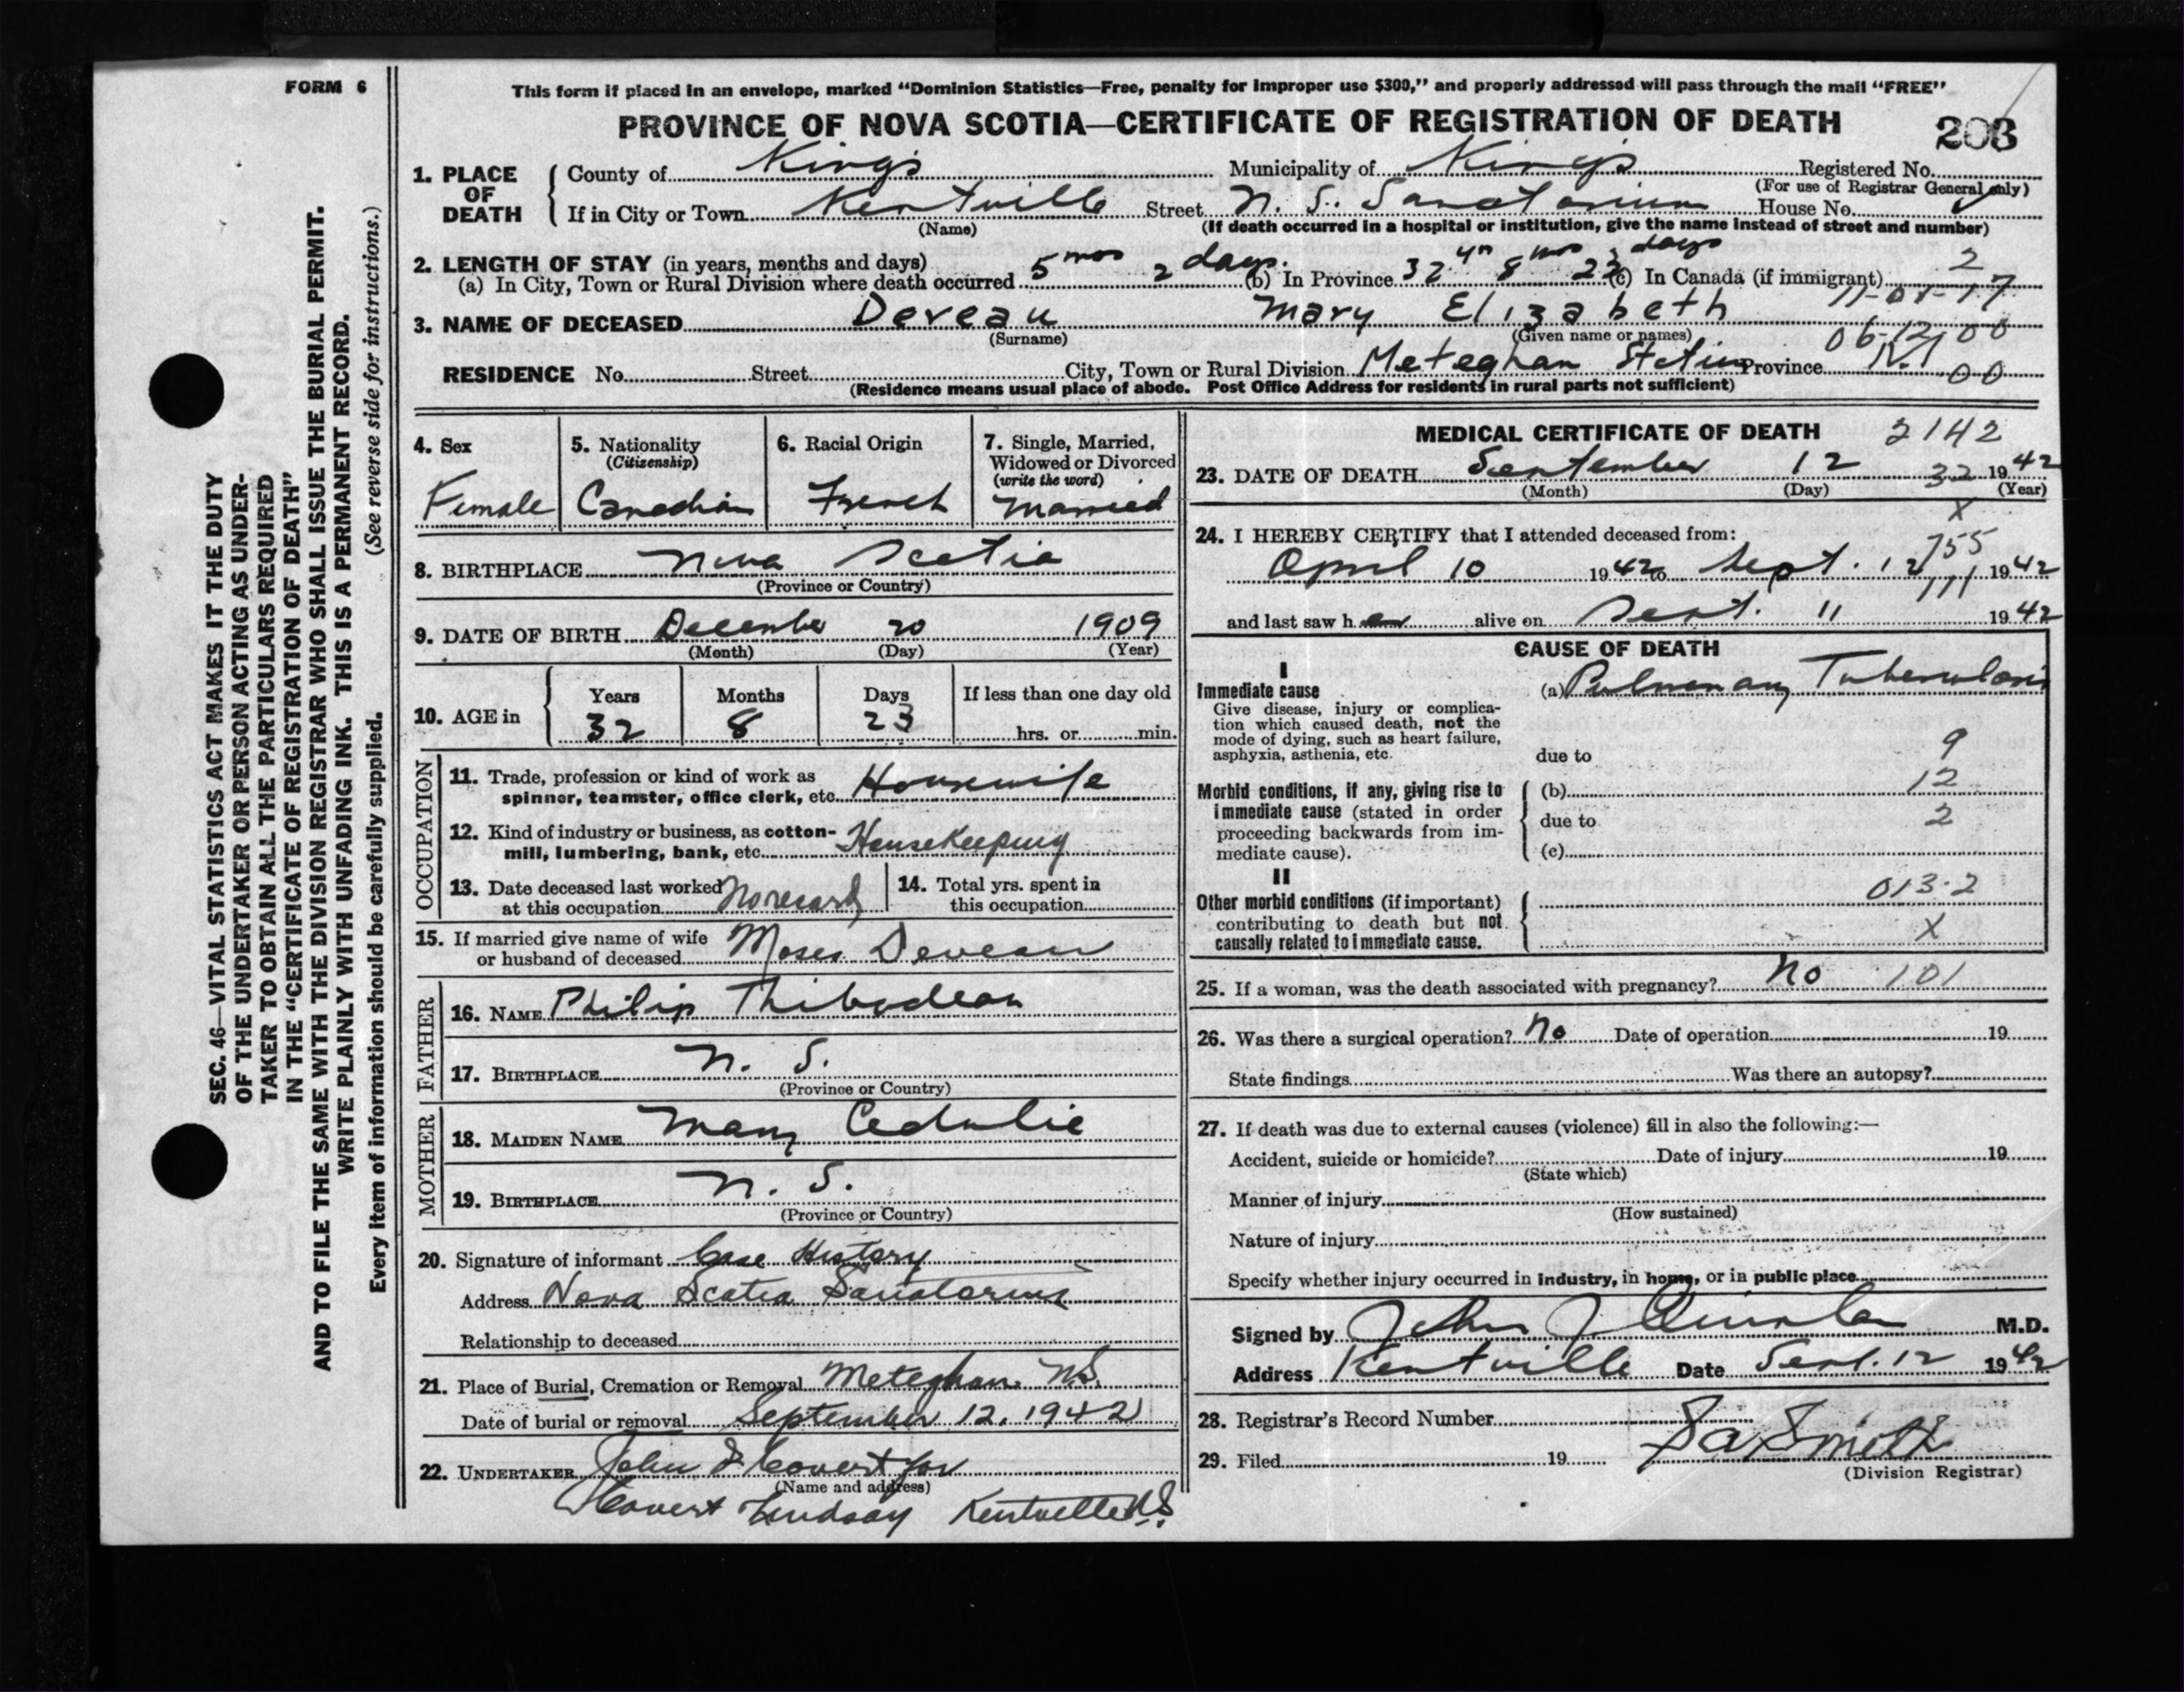 FORM 6
This form if placed in an envelope, marked "Dominion Statistics—Free, penalty for improper use $300," and properly addressed will pass through the mail "FREE"
PROVINCE OF NOVA SCOTIA—CERTIFICATE OF REGISTRATION OF DEATH
203
SEC. 46—VITAL STATISTICS ACT MAKES IT THE DUTY
OF THE UNDERTAKER OR PERSON ACTING AS UNDER-
TAKER TO OBTAIN ALL THE PARTICULARS REQUIRED
IN THE "CERTIFICATE OF REGISTRATION OF DEATH"
AND TO FILE THE SAME WITH THE DIVISION REGISTRAR WHO SHALL ISSUE THE BURIAL PERMIT.
WRITE PLAINLY WITH UNFADING INK. THIS IS A PERMANENT RECORD.
Every item of information should be carefully supplied. (See reverse side for instructions.)
1. PLACE OF DEATH
County of Kings Municipality of Kings Registered No.
(For use of Registrar General only)
If in City or Town Kentville Street N. S. Sanatorium House No.
(Name) (If death occurred in a hospital or institution, give the name instead of street and number)
2. LENGTH OF STAY (in years, months and days)
(a) In City, Town or Rural Division where death occurred 5 mos 2 days. (b) In Province 32 yrs 8 mos 23 days (c) In Canada (if immigrant)
2
11-01-17
3. NAME OF DECEASED Deveau Mary Elizabeth
(Surname) (Given name or names)
06-12-00
RESIDENCE No. Street City, Town or Rural Division Meteghan Station Province N.S.
00
(Residence means usual place of abode. Post Office Address for residents in rural parts not sufficient)
4. Sex
Female
5. Nationality
(Citizenship)
Canadian
6. Racial Origin
French
7. Single, Married,
Widowed or Divorced
(write the word)
Married
8. BIRTHPLACE Nova Scotia
(Province or Country)
9. DATE OF BIRTH December 20 1909
(Month) (Day) (Year)
10. AGE in
Years Months Days If less than one day old
32 8 23 hrs. or min.
OCCUPATION
11. Trade, profession or kind of work as
spinner, teamster, office clerk, etc. Housewife
12. Kind of industry or business, as cotton-
mill, lumbering, bank, etc. Housekeeping
13. Date deceased last worked
at this occupation No record
14. Total yrs. spent in
this occupation
15. If married give name of wife
or husband of deceased Moses Deveau
FATHER
16. NAME Philip Thibodeau
17. BIRTHPLACE N. S.
(Province or Country)
MOTHER
18. MAIDEN NAME Mary Cedulie
19. BIRTHPLACE N. S.
(Province or Country)
20. Signature of informant Case History
Address Nova Scotia Sanatorium
Relationship to deceased
21. Place of Burial, Cremation or Removal Meteghan N.S.
Date of burial or removal September 12, 1942
22. UNDERTAKER John D Covert for
(Name and address)
Covert Lindsay Kentville N.S.
MEDICAL CERTIFICATE OF DEATH 2142
23. DATE OF DEATH September 12 1942
(Month) (Day) (Year)
32
X
24. I HEREBY CERTIFY that I attended deceased from:
755
April 10 1942 to Sept. 12 1942
111
and last saw her alive on Sept. 11 1942
CAUSE OF DEATH
I
Immediate cause
Give disease, injury or complica-
tion which caused death, not the
mode of dying, such as heart failure,
asphyxia, asthenia, etc.
(a) Pulmonary Tuberculosis
due to
9
Morbid conditions, if any, giving rise to
immediate cause (stated in order
proceeding backwards from im-
mediate cause).
(b) 12
due to 2
(c)
II
Other morbid conditions (if important)
contributing to death but not
causally related to immediate cause.
013.2
X
25. If a woman, was the death associated with pregnancy? No 101
26. Was there a surgical operation? No Date of operation 19
State findings Was there an autopsy?
27. If death was due to external causes (violence) fill in also the following:—
Accident, suicide or homicide? Date of injury 19
(State which)
Manner of injury
(How sustained)
Nature of injury
Specify whether injury occurred in industry, in home, or in public place
Signed by John J Quinlan M.D.
Address Kentville Date Sept. 12 1942
28. Registrar's Record Number
29. Filed 19 Smith
(Division Registrar)